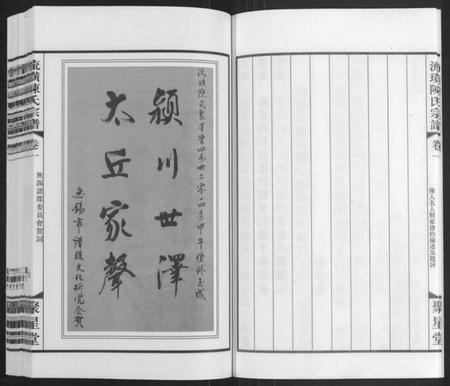 陳氏宗譜
卷一
偉人名人對家譜的論述及題詞
聚星堂
潁川世澤
太丘家聲
無錫市譜牒文化研究會賀
陳氏宗譜
卷一
無錫譜牒委員會賀詞
聚星堂